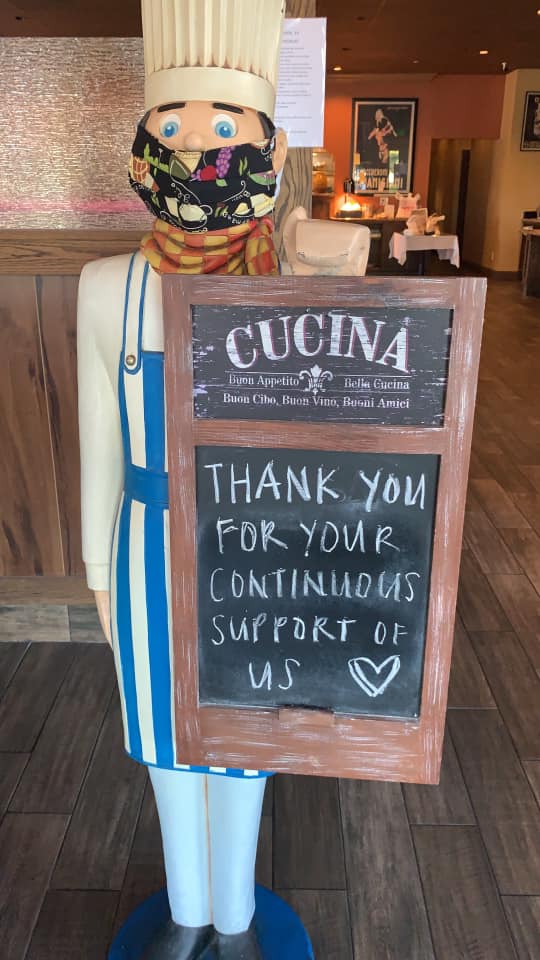 CUCINA
Buon Appetito Bella Cucina
Buon Cibo, Buon Vino, Buoni Amici
THANK YOU
FOR YOUR
CONTINUOUS
SUPPORT OF
US